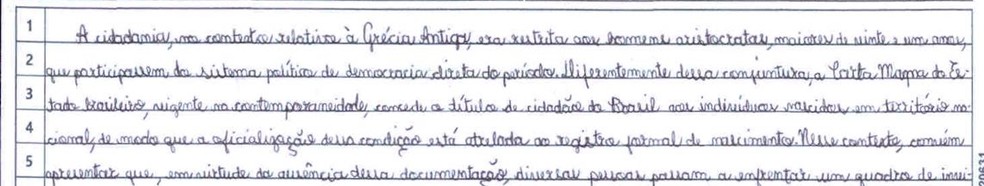 1 A cidadania, no contexto relativo à Grécia Antiga, era restrita aos homens aristocratas, maiores de vinte e um anos,
2 que participassem do sistema político de democracia direta do período. Diferentemente dessa conjuntura, a Carta Magna do Es-
3 tado brasileiro, vigente na contemporaneidade, concede o título de cidadão do Brasil aos indivíduos nascidos em território na-
4 cional, de modo que a oficialização dessa condição está atrelada ao registro formal de nascimento. Nesse contexto, convém
5 apresentar que, em virtude da ausência dessa documentação, diversas pessoas passam a enfrentar um quadro de invi-